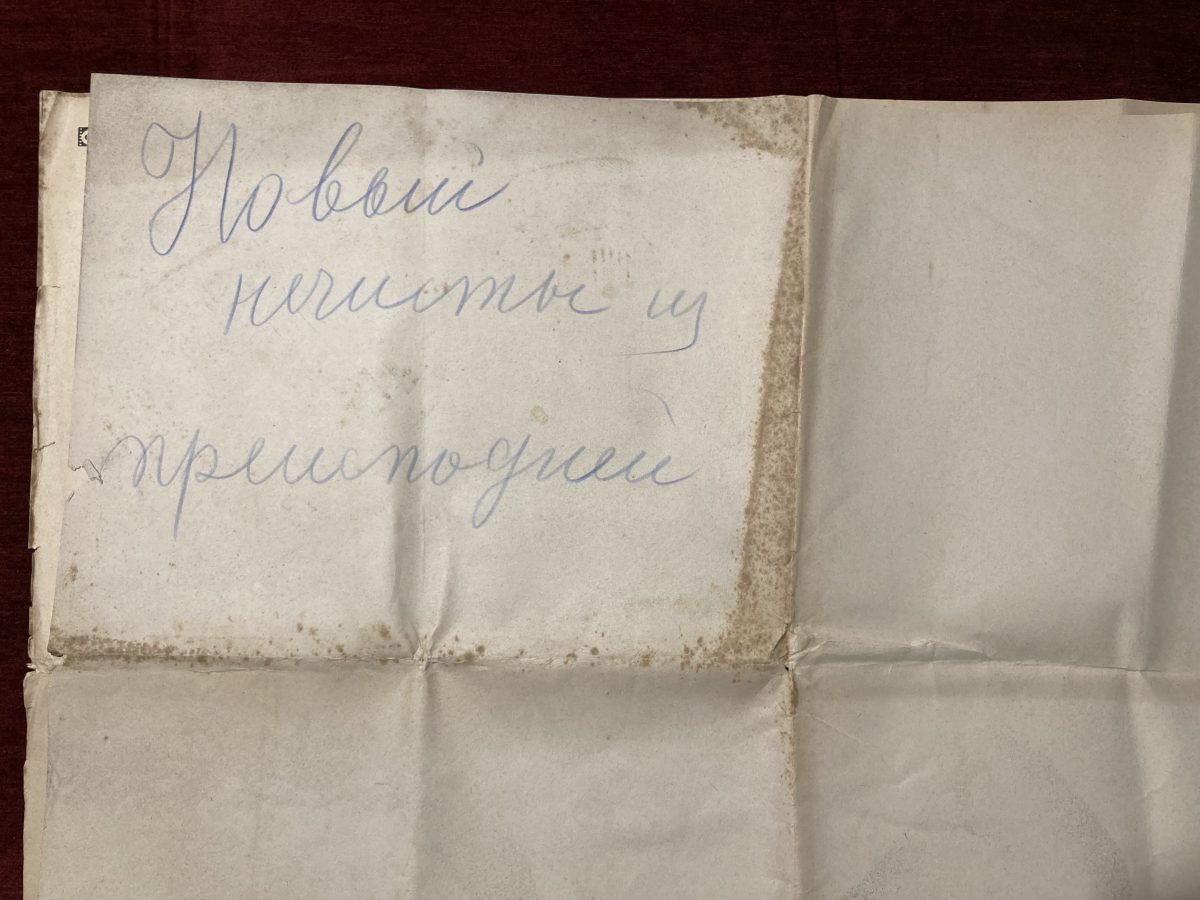 Новый
нечисты из
преисподней